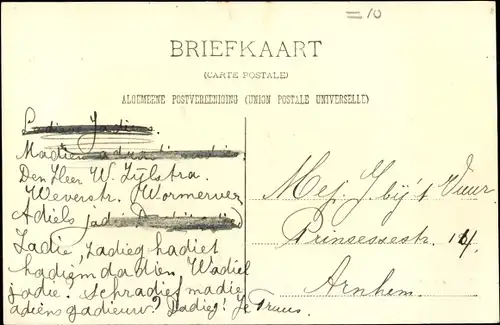 =10
BRIEFKAART
(CARTE POSTALE)
ALGEMEENE POSTVEREENIGING (UNION POSTALE UNIVERSELLE)
Den Heer W. Zijlstra.
Weverstr. Wormerveer
Adiels jadi
Zadie, Zadieg hadiet
hadiem dadien, Wadiel
jadie! schradief madie
adiens gadieuw? Dadieg! Je Truus.
Mej. J. bij 't Vuur.
Prinsessestr. 14.
Arnhem.